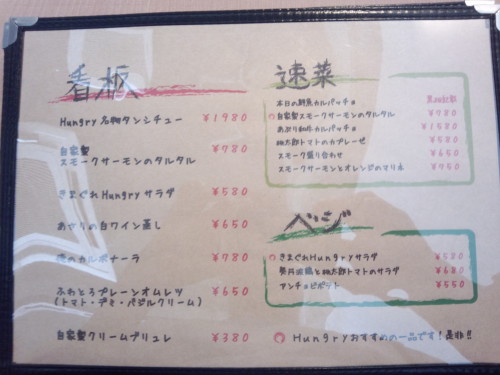 看板
Hungry 名物タンシチュー ¥1980
自家製
スモークサーモンのタルタル ¥780
きまぐれHungryサラダ ¥580
あさりの白ワイン蒸し ¥650
カルボナーラ ¥780
ふわとろプレーンオムレツ
(トマト・デミ・バジルクリーム) ¥650
自家製クリームブリュレ ¥380
速菜
本日の鮮魚カルパッチョ
自家製スモークサーモンのタルタル ¥780
あぶり和牛カルパッチョ ¥1580
桃太郎トマトのカプレーゼ ¥580
スモーク盛り合わせ ¥650
スモークサーモンとオレンジのマリネ ¥750
ベジ
きまぐれHungryサラダ ¥580
と桃太郎トマトのサラダ ¥680
アンチョビポテト ¥550
Hungryおすすめの一品です!是非!!